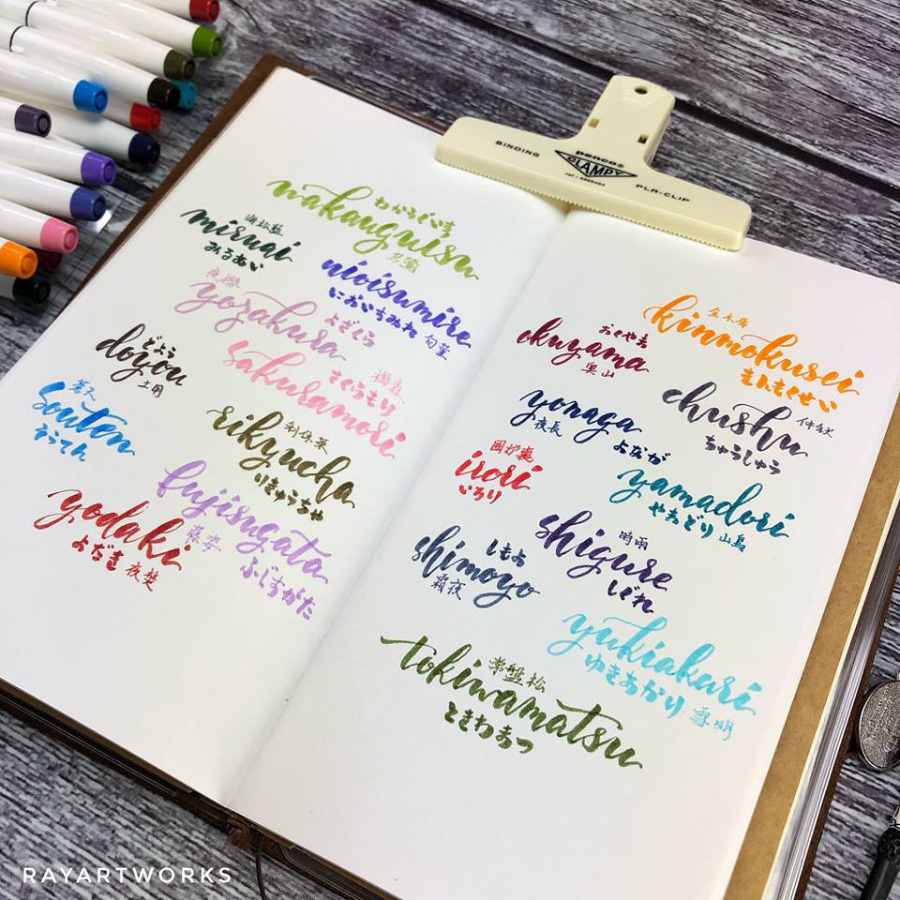 wakauguisu
わかうぐいす
若鶯
海松藍
miruai
みるあい
nioisumire
においすみれ 匂菫
夜櫻
yozakura
よざくら
どよう
doyou
土用
sakuramori
さくらもり
蒼天
souten
そうてん
利休茶
rikyucha
りきゅうちゃ
fujisugata
藤姿
ふじすがた
yodaki
よだき 夜焚
金木犀
kinmokusei
きんもくせい
おくやま
okuyama
奥山
chushu 仲秋
ちゅうしゅう
yonaga
夜長 よなが
囲炉裏
irori
いろり
yamadori
やまどり 山鳥
shigure 時雨
しぐれ
しもよ
shimoyo
霜夜
yukiakari
ゆきあかり 雪明
常盤松
tokiwamatsu
ときわまつ
BINDING penco PLA-CLIP
CLAMPY
RAYARTWORKS